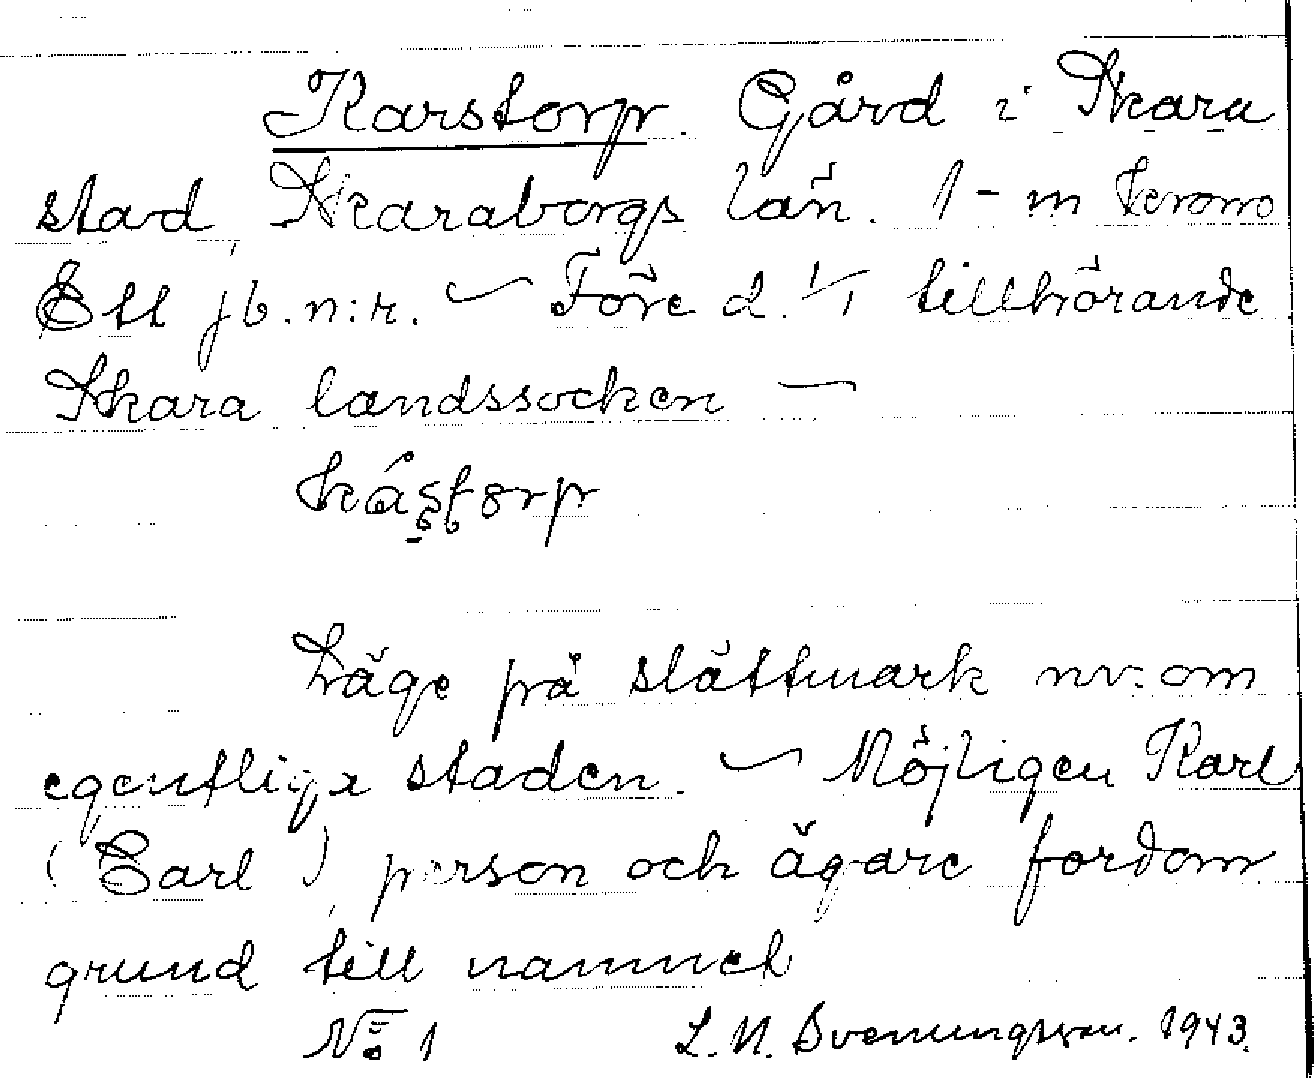 Karstorp. Gård i Skara
stad, Skaraborgs län. 1 - m krono
Ett jb. n:r. — Före d. 1/1 tillhörande
Skara landssocken —
kástorp
Läge på slättmark nv. om
egentliga staden. — Möjligen Karl
(Carl), person och ägare fordom
grund till namnet
No 1 L. N. Svenungsson. 1943.